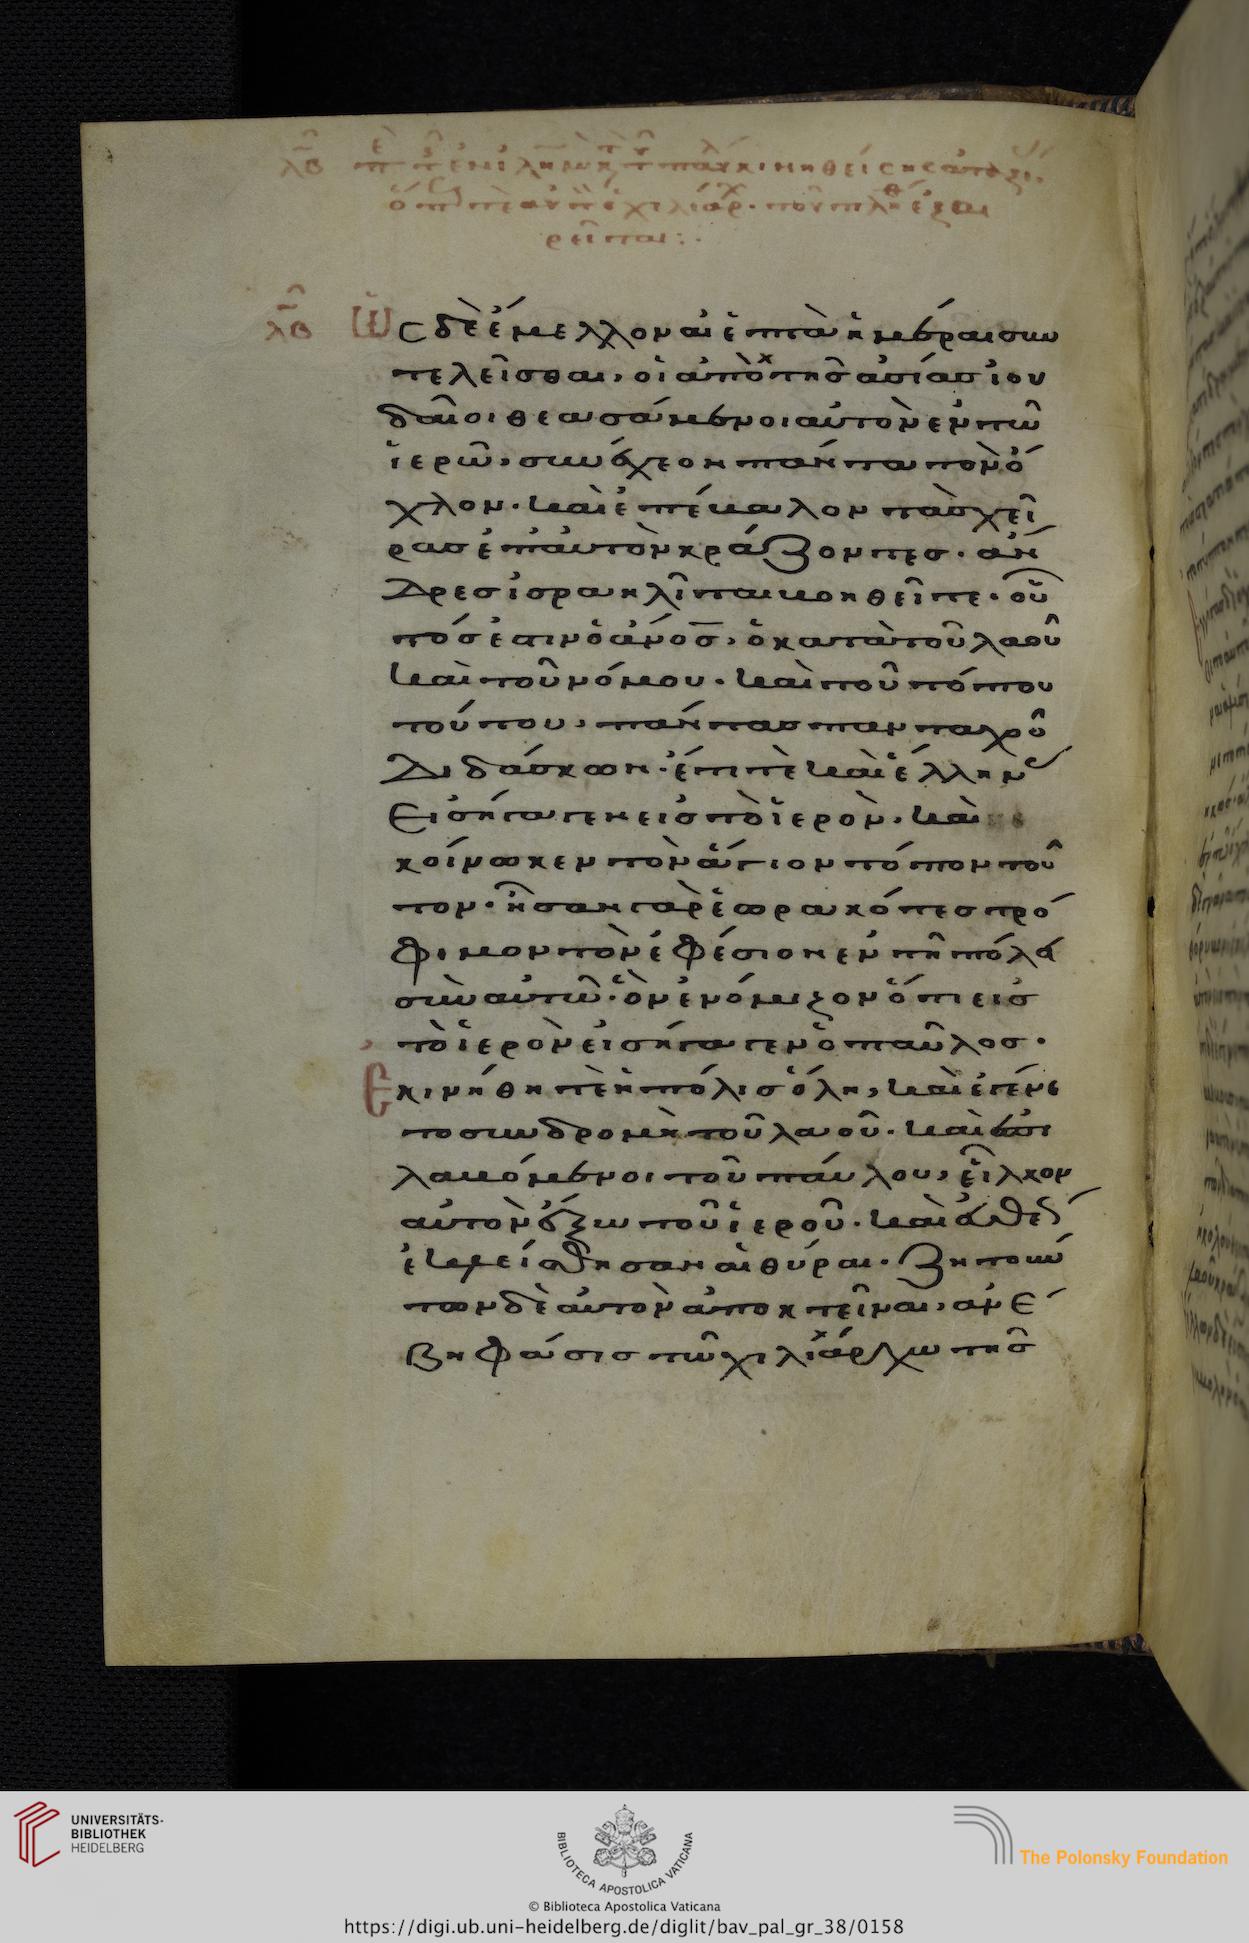 λβ
λβ Ὡς δὲ ἔμελλον αἱ ἑπτὰ ἡμέραι συν
τελεῖσθαι, οἱ ἀπὸ τῆς ἀσίας ἰου
δαῖοι θεασάμενοι αὐτὸν ἐν τῶ
ἱερῶ, συνέχεον πάντα τὸν ὄ
χλον. καὶ ἐπέβαλον τὰς χεῖ
ρας ἐπ αὐτὸν κράζοντες. ἄν
δρες ἰσραηλῖται βοηθεῖτε. οὗ
τός ἐστιν ὁ ἄνος, ὁ κατὰ τοῦ λαοῦ
καὶ τοῦ νόμου. καὶ τοῦ τόπου
τούτου, πάντας πανταχοῦ
διδάσκων. ἔτι τὲ καὶ ἕλλην
εἰσήγαγεν εἰς τὸ ἱερὸν. καὶ κε
κοίνωκεν τὸν ἅγιον τόπον τοῦ
τον. ἦσαν γὰρ ἑωρακότες τρό
φιμον τὸν ἐφέσιον ἐν τῆ πόλει
σὺν αὐτῶ. ὃν ἐνόμιζον ὅτι εἰς
τὸ ἱερὸν εἰσήγαγεν ὁ παῦλος.
Ἐκινήθη τὲ ἡ πόλις ὅλη, καὶ ἐγένε
το συνδρομὴ τοῦ λαοῦ. καὶ ἐπι
λαβόμενοι τοῦ παύλου, εἷλκον
αὐτὸν ἔξω τοῦ ἱεροῦ. καὶ εὐθέ
ἐκλείσθησαν αἱ θύραι. ζητούν
των δὲ αὐτὸν ἀποκτεῖναι, ἀνέ
βη φάσις τῶ χιλιάρχω τῆς
UNIVERSITÄTS-
BIBLIOTHEK
HEIDELBERG
BIBLIOTECA APOSTOLICA VATICANA
The Polonsky Foundation
© Biblioteca Apostolica Vaticana
https://digi.ub.uni-heidelberg.de/diglit/bav_pal_gr_38/0158